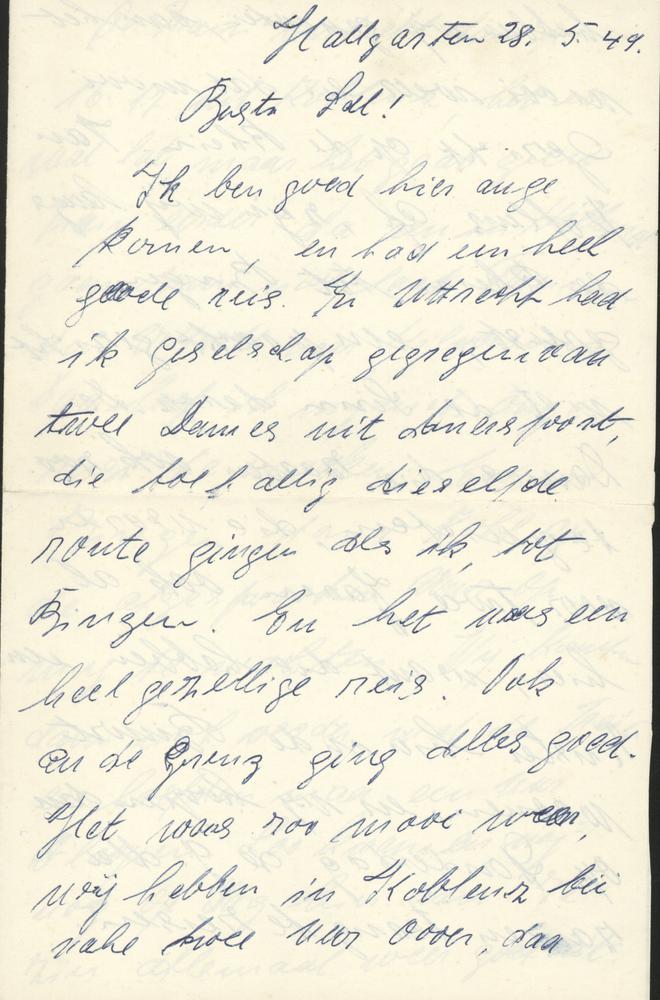 Hallgarten 28. 5. 49.
Beste Lal!
Ik ben goed hier ange
komen, en had een heel
goede reis. In Uttrecht had
ik geselschap gegregen van
twee Dames uit Amersfoort,
die toefallig dieselfde
route gingen als ik, tot
Bingen. En het was een
heel gezellige reis. Ook
an de Grenz ging alles goed.
Het was zoo mooi weer,
wÿ hebben in Koblenz bei
nahe twee Uur Over, daa